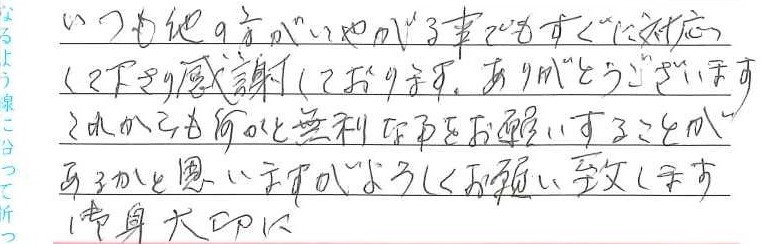 いつも他の方がいやがる事でもすぐに対応
して下さり感謝しております。ありがとうございます
これからも何かと無利な事をお願いすることが
あるかと思いますがよろしくお願い致します
御身大切に
なるよう線に沿って折っ